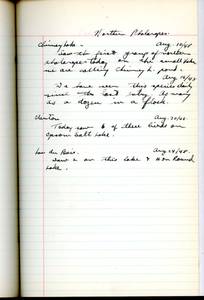 Northern Phalaropes
Chimney Lake - Aug. 10/48
Saw the first group of northern
phalaropes today on the small lake
we are calling Chimney
Aug
We have seen this species daily
since the last entry. As many
as a dozen in a flock.
Clinton Aug. 20/48
Today saw 6 of these birds on
Lake.
Lac du Bois. Aug 24/48.
Saw 2 on this lake & on Round
Lake.